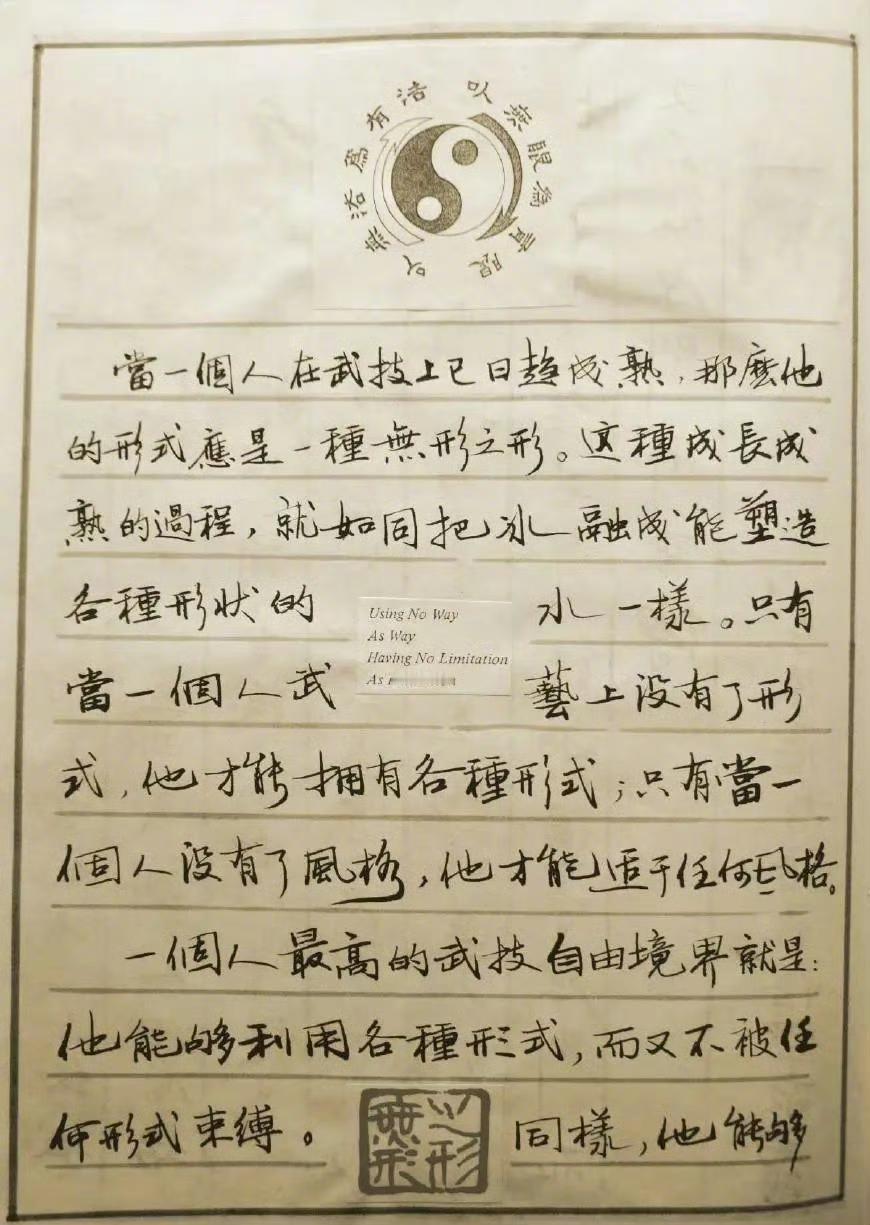 以無法為有法
以無限為有限
當一個人在武技上已日趨成熟,那麽他
的形式應是一種無形之形。这種成長成
熟的過程,就如同把冰融成能塑造
各種形狀的水一樣。只有
Using No Way
As Way
Having No Limitation
As
當一個人武藝上没有了形
式,他才能拥有各種形式;只有當一
個人没有了風格,他才能适于任何风格。
一個人最高的武技自由境界就是:
他能够利用各種形式,而又不被任
何形式束縛。同樣,他能够
無形之形